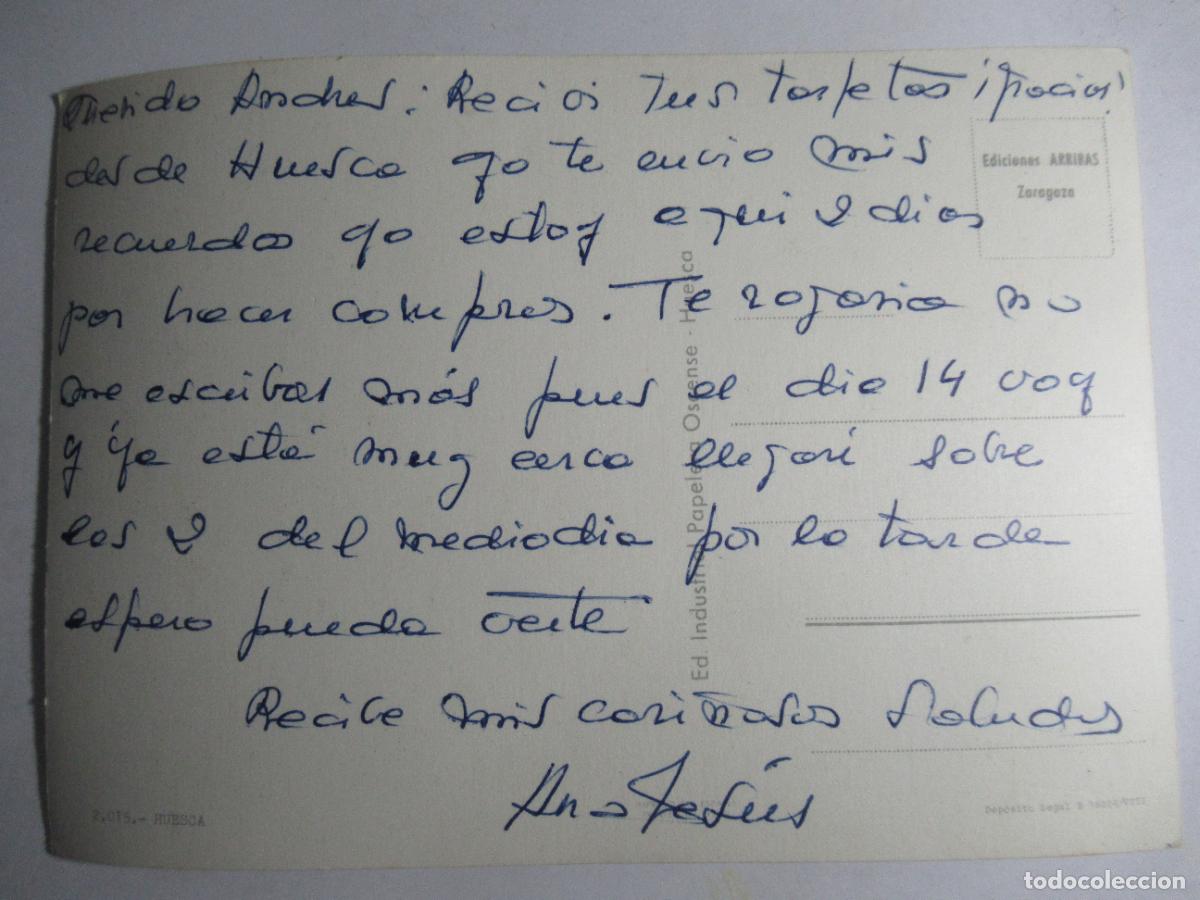 Querido Andres: Recibi Tus tarjetas ¡Gracias!
desde Huesca yo te envio mis
recuerdos yo estoy aqui 2 dias
por hacer compras. Te rogaria no
me escribas más pues el dia 14 voy
y ya está muy cerca llegaré sobre
las 2 del mediodia por la tarde
espero pueda verte
Recibe mis cariñosos saludos
Ana Jesús
Ediciones ARRIBAS
Zaragoza
Ed. Industrial Papelera Oscense - Huesca
2.015.- HUESCA
Depósito Legal B
todocoleccion